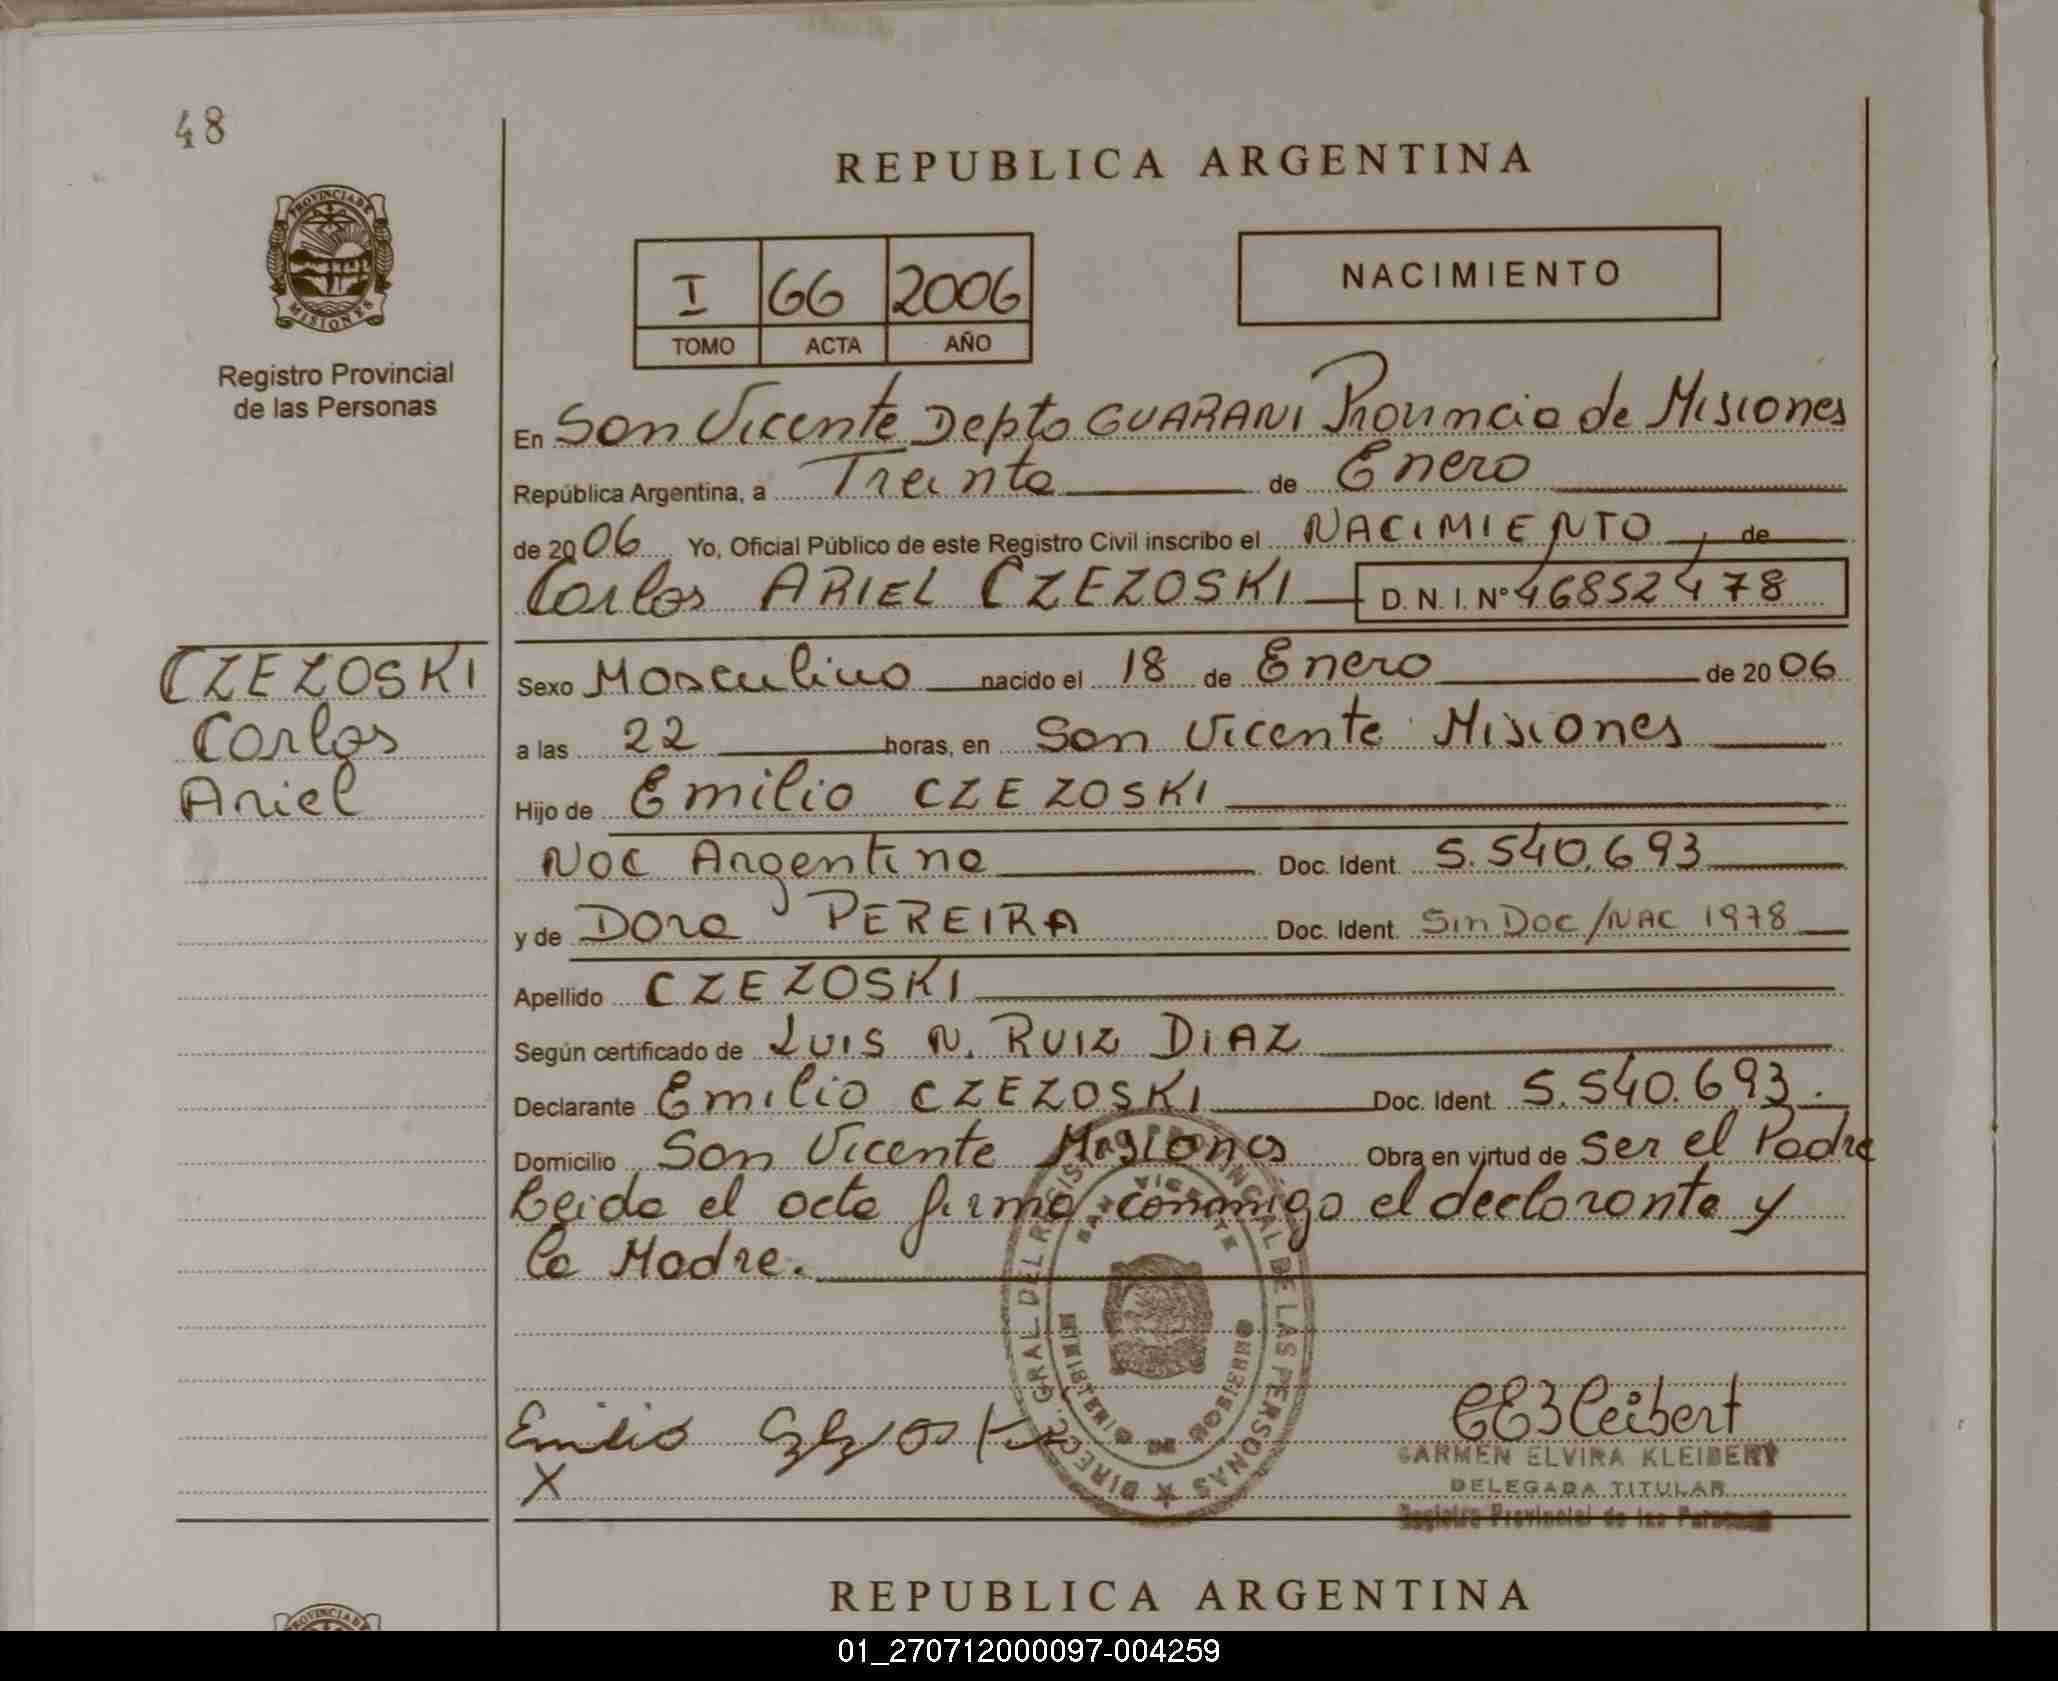 48
REPUBLICA ARGENTINA
PROVINCIA DE
MISIONES
Registro Provincial
de las Personas
I 66 2006
TOMO ACTA AÑO
NACIMIENTO
En San Vicente Depto GUARANI Provincia de Misiones
República Argentina, a Treinta de Enero
de 2006 Yo, Oficial Público de este Registro Civil inscribo el NACIMIENTO, de
Carlos ARIEL CZEZOSKI D. N. I. Nº 46852478
CZEZOSKI
Carlos
Ariel
Sexo Masculino nacido el 18 de Enero de 2006
a las 22 horas, en San Vicente Misiones
Hijo de Emilio CZEZOSKI
Nac Argentina Doc. Ident. 5.540.693
y de Dora PEREIRA Doc. Ident. Sin Doc/NAC 1978
Apellido CZEZOSKI
Según certificado de LUIS N. RUIZ DIAZ
Declarante Emilio CZEZOSKI Doc. Ident. 5.540.693.
Domicilio San Vicente Misiones Obra en virtud de Ser el Padre
Leida el acta firma conmigo el declarante y
la Madre.
DIRECC. GRAL DEL REGISTRO PROVINCIAL DE LAS PERSONAS
SAN VICENTE
MINISTERIO DE GOBIERNO
Emilio
X
CARMEN ELVIRA KLEIBERT
DELEGADA TITULAR
Registro Provincial de las Personas
REPUBLICA ARGENTINA
PROVINCIA DE
01_270712000097-004259